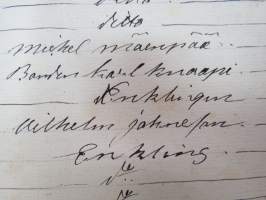 ditto
mickel mäenpää
Bonden karl knaapi
Enklingen
Wilhelm johnsson
Enkling